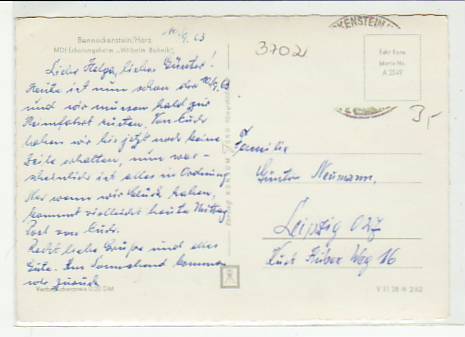 Benneckenstein/Harz
MDI-Erholungsheim
10./9. 63
Liebe Helga, lieber Günter!
Heute ist nun schon der 10./9. 63
und wir müssen bald zur
Heimfahrt rüsten. Von Euch
haben wir bis jetzt noch keine
Zeile erhalten, nun war-
scheinlich ist alles in Ordnung
Nur wenn wir Glück haben,
kommt vielleicht heute Mittag
Post von Euch.
Recht liebe Grüße und alles
Gute. Am Sonnabend kommen
wir zurück
Verbraucherpreis 0,20 DM
3702
BENNECKENSTEIN
3,-
Familie
Günter Neumann,
Leipzig
Kurt Weg 16
V 11 28 A 2/62